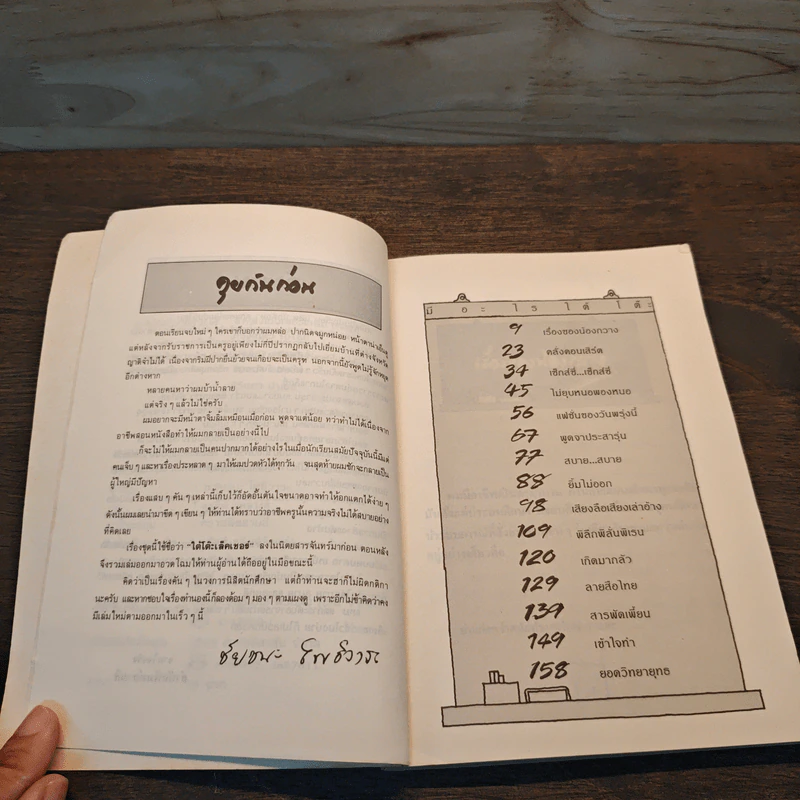 คุยกันก่อน
ตอนเรียนจบใหม่ ๆ ใครเขาก็บอกว่าผมหล่อ ปากนิดจมูกหน่อย หน้าตาน่าเอ็นดู
แต่หลังจากรับราชการเป็นครูอยู่เพียงไม่กี่ปีปรากฏกลับไปเยี่ยมบ้านที่ต่างจังหวัด
ญาติจำไม่ได้ เนื่องจากริมฝีปากยื่นย้วยจนเกือบจะเป็นครุฑ นอกจากนี้ยังพูดไม่รู้จักหยุด
อีกต่างหาก
หลายคนหาว่าผมบ้าน้ำลาย
แต่จริง ๆ แล้วไม่ใช่ครับ
ผมอยากจะมีหน้าตาจิ้มลิ้มเหมือนเมื่อก่อน พูดจาแต่น้อย ทว่าทำไม่ได้เนื่องจาก
อาชีพสอนหนังสือทำให้ผมกลายเป็นอย่างนี้ไป
ก็จะไม่ให้ผมกลายเป็นคนปากมากได้อย่างไรในเมื่อนักเรียนสมัยปัจจุบันนี้มีแต่
คนเจ็บ ๆ และหาเรื่องประหลาด ๆ มาให้ผมปวดหัวได้ทุกวัน จนสุดท้ายผมชักจะกลายเป็น
ผู้ใหญ่มีปัญหา
เรื่องแสบ ๆ คัน ๆ เหล่านี้เก็บไว้ก็อัดอั้นตันใจขนาดอาจทำให้อกแตกได้ง่าย ๆ
ดังนั้นผมเลยนำมาขีด ๆ เขียน ๆ ให้ท่านได้ทราบว่าอาชีพครูนั้นความจริงไม่ได้สบายอย่าง
ที่คิดเลย
เรื่องชุดนี้ใช้ชื่อว่า "ใต้โต๊ะเล็คเชอร์" ลงในนิตยสารจันทร์มาก่อน ตอนหลัง
จึงรวมเล่มออกมาอวดโฉมให้ท่านผู้อ่านได้ถืออยู่ในมือขณะนี้
คิดว่าเป็นเรื่องคัน ๆ ในวงการนิสิตนักศึกษา แต่ถ้าท่านจะฮาก็ไม่ผิดกติกา
นะครับ และหากชอบใจเรื่องทำนองนี้ก็ลองด้อม ๆ มอง ๆ ตามแผงดู เพราะอีกไม่ช้าคิดว่าคง
มีเล่มใหม่ตามออกมาในเร็ว ๆ นี้
มี อะ ไร ใต้ โต๊ะ
9 เรื่องของน้องกวาง
23 คลั่งคอนเสิร์ต
34 เซ็กส์ซี่...เซ็กส์ซี่
45 ไม่ยุบหนอพองหนอ
56 แฟชั่นของวันพรุ่งนี้
67 พูดจาประสารุ่น
77 สบาย...สบาย
88 ยิ้มไม่ออก
98 เสียงลือเสียงเล่าอ้าง
109 พิลึกพิลั่นพิเรน
120 เกิดมากลัว
129 ลายสือไทย
139 สารพัดเพี้ยน
149 เข้าใจทำ
158 ยอดวิทยายุทธ